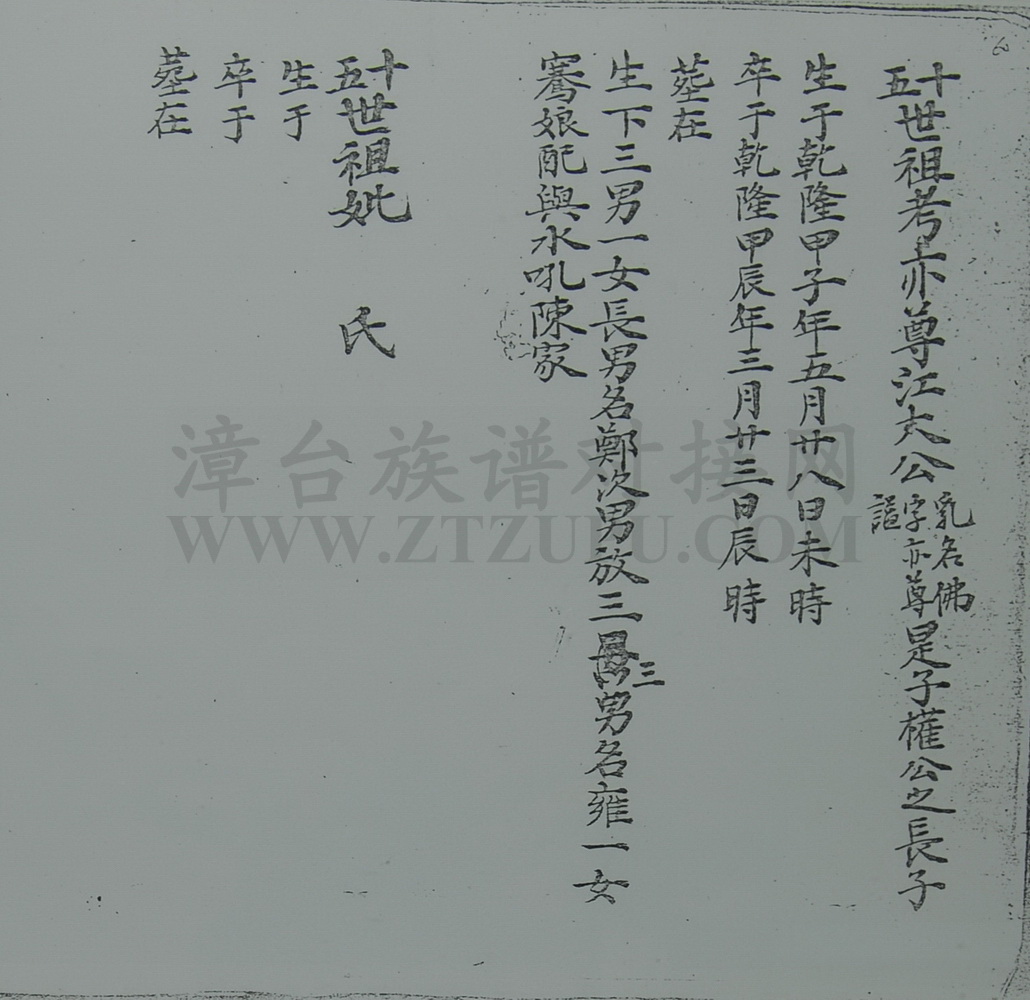 十五世祖考亦尊江大公乳名佛字亦尊諡是子權公之長子
生于乾隆甲子年五月廿八日未時
卒于乾隆甲辰年三月廿三日辰時
塟在
生下三男一女長男名鄭次男放三三男名雍一女
騫娘配與水吼陳家
十五世祖妣 氏
生于
卒于
塟在
漳台族谱对接网
WWW.ZTZUPU.COM